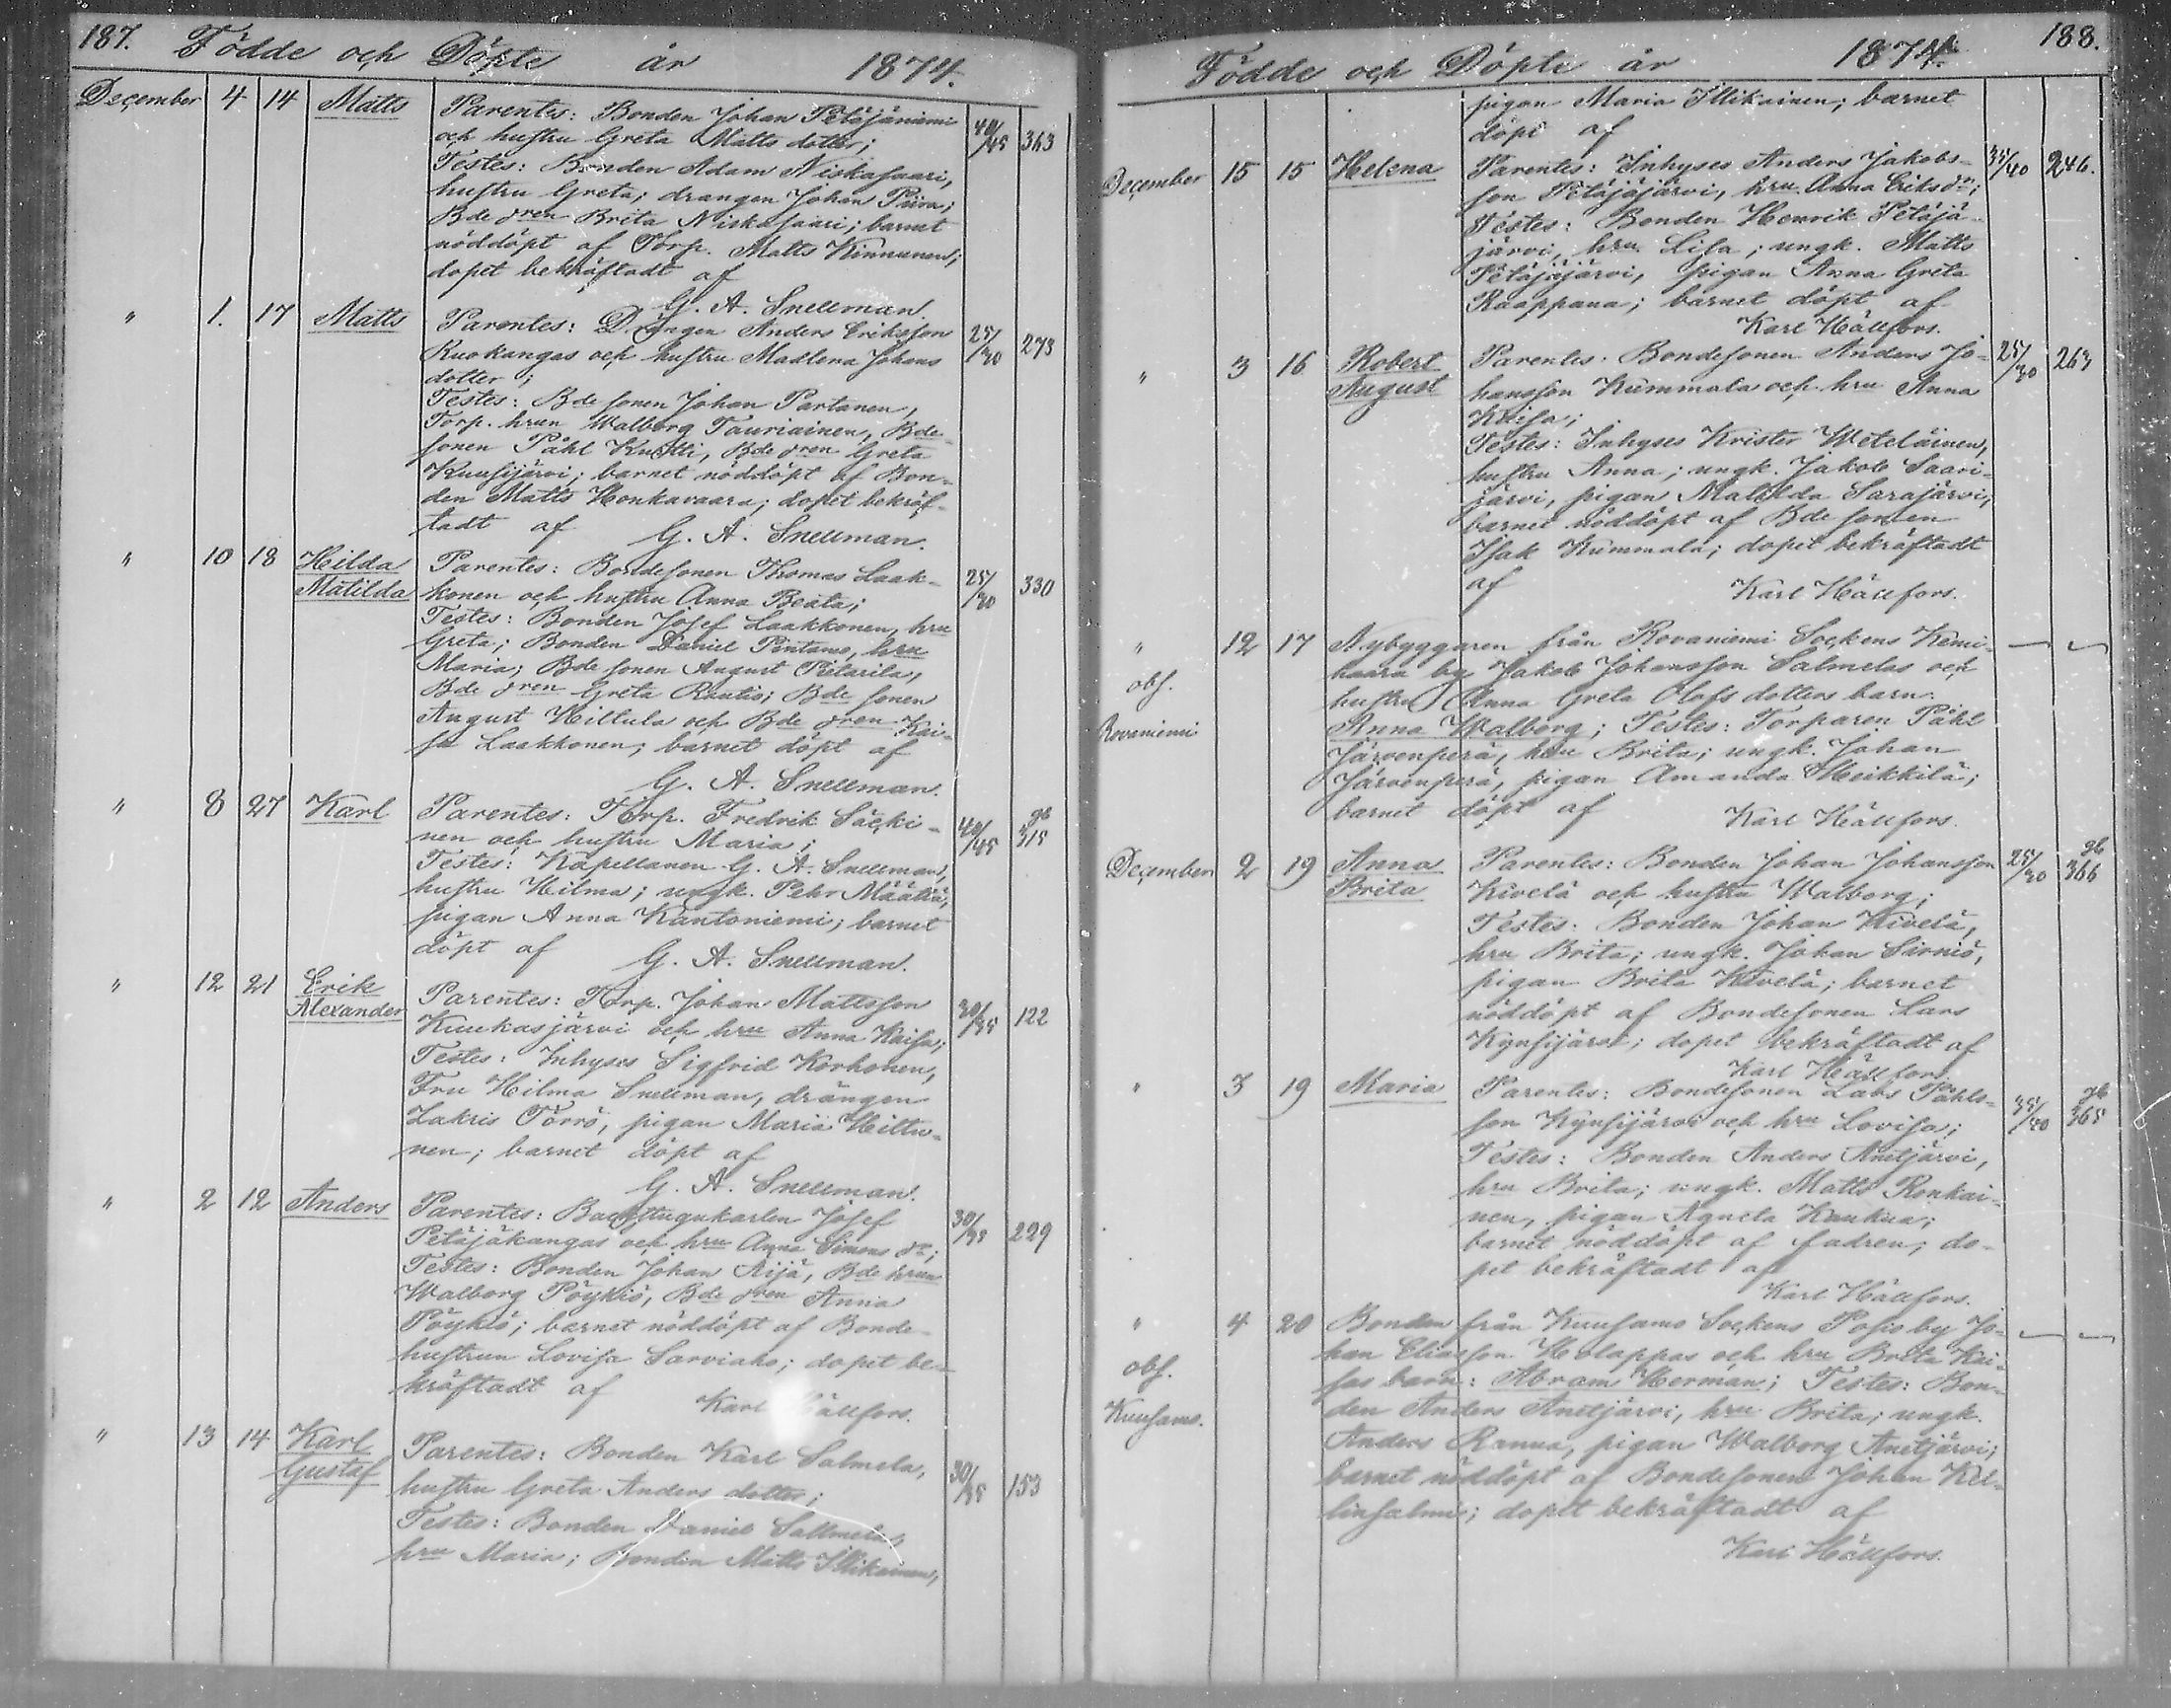 187. Födde och Döpte år 1874.
December 4 14 Matts Parentes: Bonden Johan Petäjäniemi 40/45 363
och hustru Greta Matts dotter;
Testes: Bonden Adam Niskasaari,
hustru Greta; drängen Johan
Bde dren Brita Niskasaari; barnet
nöddöpt af Torp. Matts Kinnunen;
dopet bekräftadt af
G. A. Snellman.
" 1. 17 Matts Parentes: Drängen Anders Eriksson 25/30 273
Ruokangas och hustru Madlena Johans
dotter;
Testes: Bde sonen Johan Partanen,
Torp. hrun Walborg Tauriainen, Bde
sonen Påhl Kurtti, Bde dren Greta
Kuusijärvi; barnet nöddöpt af Bon-
den Matts Honkavaara; dopet bekräf-
tadt af G. A. Snellman.
" 10 18 Hilda Parentes: Bondesonen Thomas Laak- 25/30 330
Matilda konen och hustru Anna Beata;
Testes: Bonden Josef Laakkonen, hru
Greta; Bonden Daniel Pintamo, hru
Maria; Bde sonen August Pietarila,
Bde dren Greta Raatio; Bde sonen
August Hiltula och Bde dren Kai-
sa Laakkonen; barnet döpt af
G. A. Snellman.
" 8 27 Karl Parentes: Torp. Fredrik Säcki- 40/45 gb 315
nen och hustru Maria;
Testes: Kapellanen G. A. Snellman,
hustru Hilma; ungk. Pehr Määttä,
pigan Anna Kantoniemi; barnet
döpt af G. A. Snellman.
" 12 21 Erik Parentes: Torp. Johan Mattsson 30/35 122
Alexander Kuukasjärvi och hru Anna Kaisa;
Testes: Inhyses Sigfrid Korhonen,
Fru Hilma Snellman, drängen
Zakris Törrö, pigan Maria Hiltu-
nen; barnet döpt af
G. A. Snellman.
" 2 12 Anders Parentes: Backstugukarlen Josef 30/35 229
Petäjäkangas och hru Anna Simons dr;
Testes: Bonden Johan Äijä, Bde hrun
Walborg Pöykiö, Bde dren Anna
Pöykiö; barnet nöddöpt af Bonde-
hustrun Lovisa Sarviaho; dopet be-
kräftadt af Karl Hällfors.
" 13 14 Karl Parentes: Bonden Karl Salmela, 30/35 153
Gustaf hustru Greta Anders dotter;
Testes: Bonden Daniel Sallmela,
hru Maria; Bonden Matts Illikainen,
Födde och Döpte år 1874. 188.
pigan Maria Illikainen; barnet
döpt af
December 15 15 Helena Parentes: Inhyses Anders Jakobs- 35/40 246.
son Petäjäjärvi, hru Anna Eriks dr;
Testes: Bonden Henrik Petäjä-
järvi, hru Lisa; ungk. Matts
Petäjäjärvi, pigan Anna Greta
Raappana; barnet döpt af
Karl Hällfors.
" 3 16 Robert Parentes: Bondesonen Anders Jo- 25/30 263
August hansson Kummala och hru Anna
Kaisa;
Testes: Inhyses Krister Weteläinen,
hustru Anna; ungk. Jakob Saari-
järvi, pigan Matilda Sarajärvi;
barnet nöddöpt af Bde sonen
Isak Kummala; dopet bekräftadt
af Karl Hällfors.
" 12 17 Nybyggaren från Rovaniemi Sockens Kemi-
obs. haara by Jakob Johansson Salmelas och
hustru Anna Greta Olofs dotters barn:
Rovaniemi Anna Walborg; Testes: Torparen Påhl
Järvenperä, hru Brita; ungk. Johan
Järvenperä, pigan Amanda Heikkilä;
barnet döpt af Karl Hällfors.
December 2 19 Anna Parentes: Bonden Johan Johansson 25/30 gb 366
Brita Kivelä och hustru Walborg;
Testes: Bonden Johan Kivelä,
hru Brita; ungk. Johan Sirniö,
pigan Brita Kivelä; barnet
nöddöpt af Bondesonen Lars
Kynsijärvi; dopet bekräftadt af
Karl Hällfors.
" 3 19 Maria Parentes: Bondesonen Lars Påhls- 35/40 gb 365
son Kynsijärvi och hru Lovisa;
Testes: Bonden Anders Anetjärvi,
hru Brita; ungk. Matts Ronkai-
nen, pigan Agneta Kaukua;
barnet nöddöpt af fadren; do-
pet bekräftadt af
Karl Hällfors.
" 4 20 Bonden från Kuusamo Sockens Posio by Jo-
obs. han Eliasson Holappas och hru Brita Kai-
sas barn: Abram Herman; Testes: Bon-
Kuusamo. den Anders Anetjärvi, hru Brita; ungk.
Anders Ranua, pigan Walborg Anetjärvi;
barnet nöddöpt af Bondesonen Johan Kil-
linsalmi; dopet bekräftadt af
Karl Hällfors.